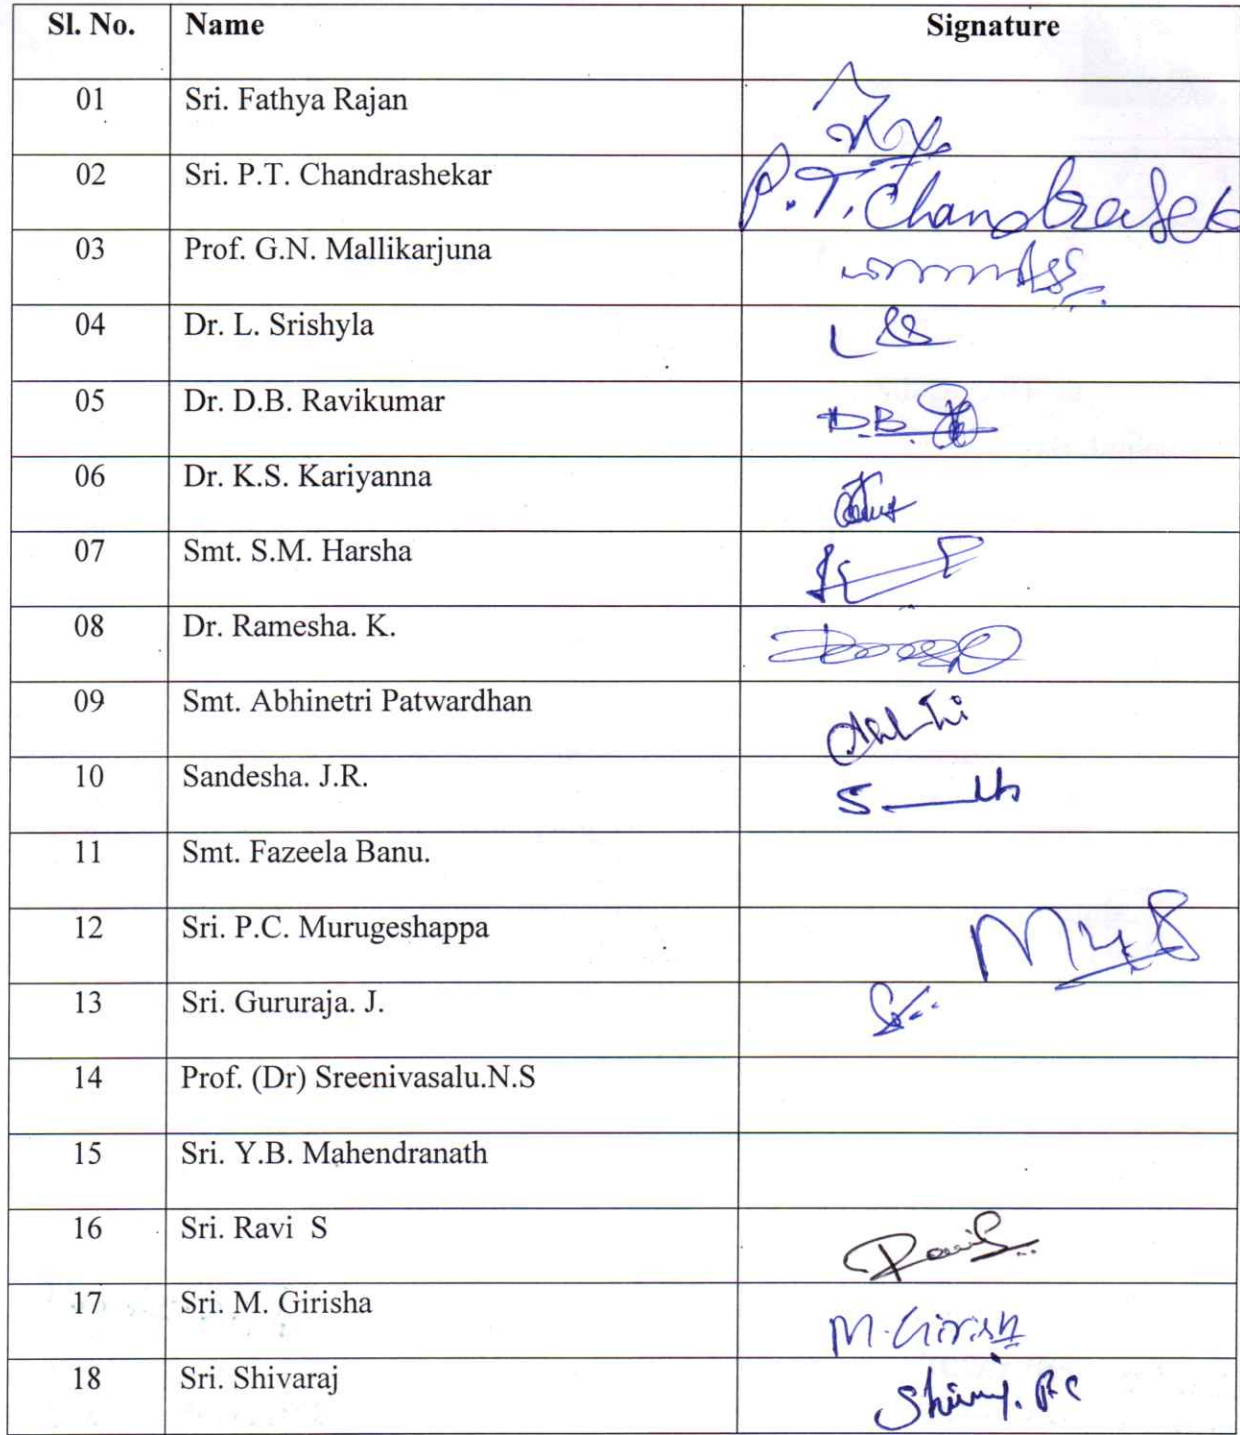 Sl. No. Name Signature
01 Sri. Fathya Rajan
02 Sri. P.T. Chandrashekar P.T. Chandrasek
03 Prof. G.N. Mallikarjuna
04 Dr. L. Srishyla
05 Dr. D.B. Ravikumar D.B.
06 Dr. K.S. Kariyanna
07 Smt. S.M. Harsha
08 Dr. Ramesha. K.
09 Smt. Abhinetri Patwardhan
10 Sandesha. J.R.
11 Smt. Fazeela Banu.
12 Sri. P.C. Murugeshappa
13 Sri. Gururaja. J.
14 Prof. (Dr) Sreenivasalu.N.S
15 Sri. Y.B. Mahendranath
16 Sri. Ravi S
17 Sri. M. Girisha M. Girish
18 Sri. Shivaraj